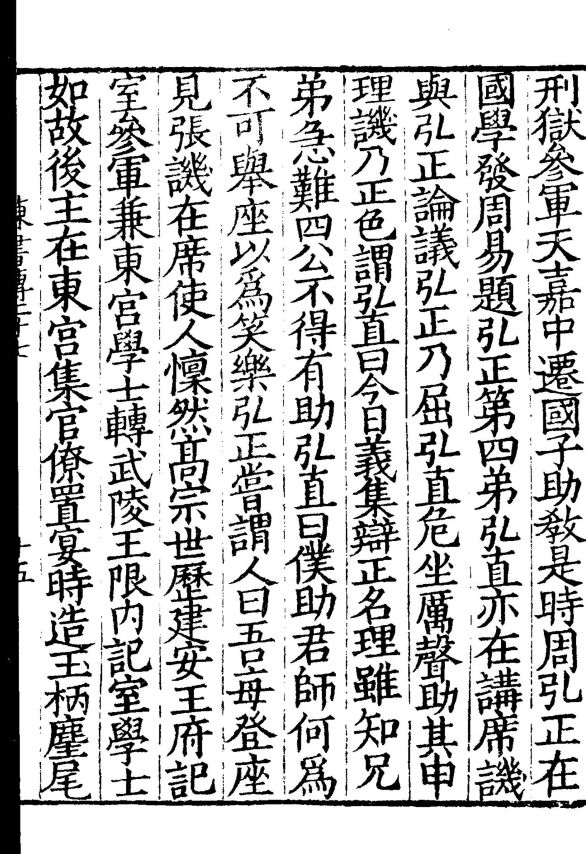 刑獄參軍天嘉中遷國子助教是時周弘正在
國學發周易題弘正第四弟弘直亦在講席譏
與弘正論議弘正乃屈弘直危坐厲聲助其申
理譏乃正色謂弘直曰今日義集辯正名理雖知兄
弟急難四公不得有助弘直曰僕助君師何爲
不可舉座以爲笑樂弘正嘗謂人曰吾每登座
見張譏在席使人懍然髙宗世歷建安王府記
室參軍兼東宮學士轉武陵王限内記室學士
如故後主在東宮集官僚置宴時造玉柄麈尾
陳書傳二十七
十五